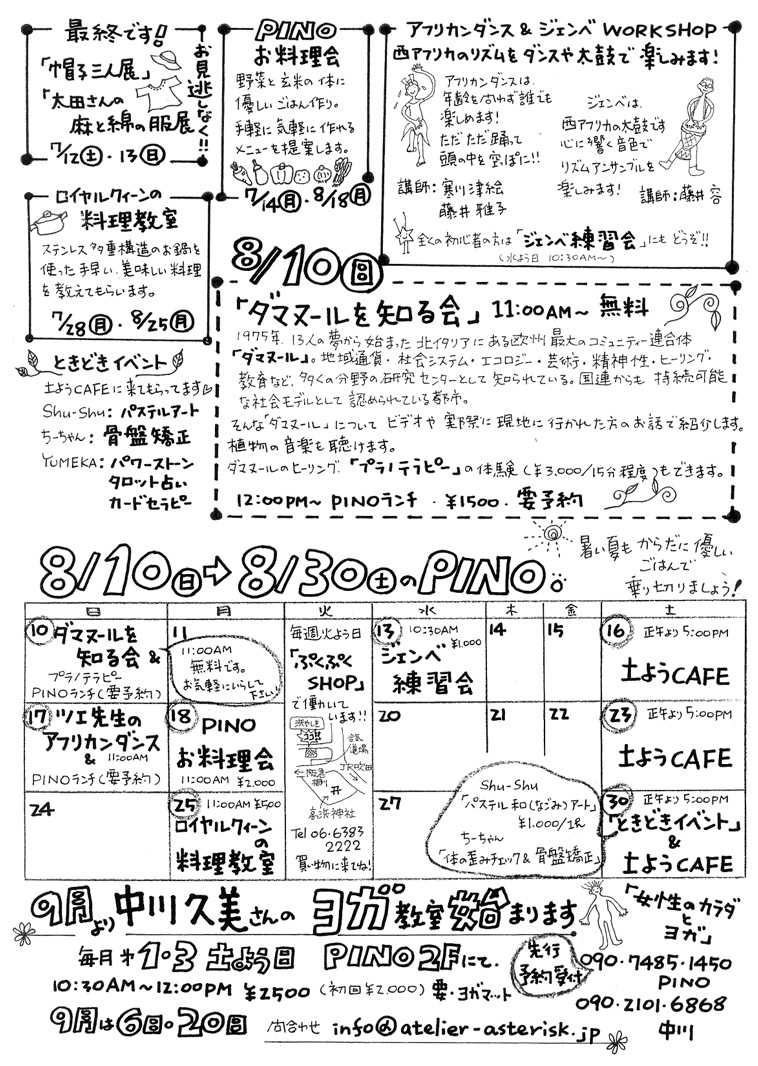 最終です!
お見逃しなく!!
「帽子三人展」
「太田さんの
麻と綿の服展
7/12土・13日
PINO
お料理会
野菜と玄米の体に
優しいごはん作り。
手軽に気軽に作れる
メニューを提案します。
7/14月・8/18月
アフリカンダンス & ジェンベ WORKSHOP
西アフリカのリズムをダンスや太鼓で楽しみます!
アフリカンダンスは、
年齢を問わず誰でも
楽しめます!
ただただ踊って
頭の中を空っぽに!!
講師:寒川津絵
藤井雅子
ジェンベは、
西アフリカの太鼓です
心に響く音色で
リズムアンサンブルを
楽しみます!
講師:藤井容
全くの初心者の方は「ジェンベ練習会」にもどうぞ!!
(水よう日 10:30AM~)
ロイヤルクィーンの
料理教室
ステンレス多重構造のお鍋を
使った手早い、美味しい料理
を教えてもらいます。
7/28月・8/25月
ときどきイベント
土ようCAFEに来てもらってます
Shu-Shu: パステルアート
ちーちゃん: 骨盤矯正
YUMEKA: パワーストーン
タロット占い
カードセラピー
8/10日
「ダマヌールを知る会」 11:00AM~ 無料
1975年、13人の夢から始まった北イタリアにある欧州最大のコミュニティー連合体
「ダマヌール」。地域通貨・社会システム・エコロジー・芸術・精神性・ヒーリング・
教育など、多くの分野の研究センターとして知られている。国連からも持続可能
な社会モデルとして認められている都市。
そんな「ダマヌール」についてビデオや実際に現地に行かれた方のお話で紹介します。
植物の音楽も聴けます。
ダマヌールのヒーリング「プラノテラピー」の体験(¥3,000/15分程度)もできます。
12:00PM~ PINOランチ・¥1500・要予約
8/10日→8/30土のPINO。
暑い夏もからだに優しい
ごはんで
乗り切りましょう!
日 月 火 水 木 金 土
10 ダマヌールを
知る会 &
プラノテラピー
PINOランチ(要予約)
11
11:00AM
無料です。
お気軽にいらして
下さい!
毎週火よう日
「ぷくぷく
SHOP」
で働いて
います!!
JR吹田
高浜神社
Tel 06・6383
2222
買い物に来てね!
13 10:30AM
¥1,000
ジェンベ
練習会
14
15
16 正午より5:00PM
土ようCAFE
17 ツエ先生の
アフリカンダンス
& 11:00AM
PINOランチ(要予約)
18 PINO
お料理会
11:00AM ¥2,000
20
21
22
23 正午より5:00PM
土ようCAFE
24
25 11:00AM ¥500
ロイヤルクィーン
の
料理教室
27
Shu-Shu
「パステル和(なごみ)アート」
¥1,000/1R
ちーちゃん
「体の歪みチェック&骨盤矯正」
30 正午より5:00PM
「ときどきイベント」
&
土ようCAFE
9月より中川久美さんのヨガ教室始まります
毎月第1・3土よう日 PINO 2Fにて。
10:30AM~12:00PM ¥2500 (初回¥2,000) 要・ヨガマット
9月は6日・20日
先行
予約受付
「女性のカラダ
と
ヨガ」
090・7485・1450
PINO
090・2101・6868
中川
問合わせ info@atelier-asterisk.jp